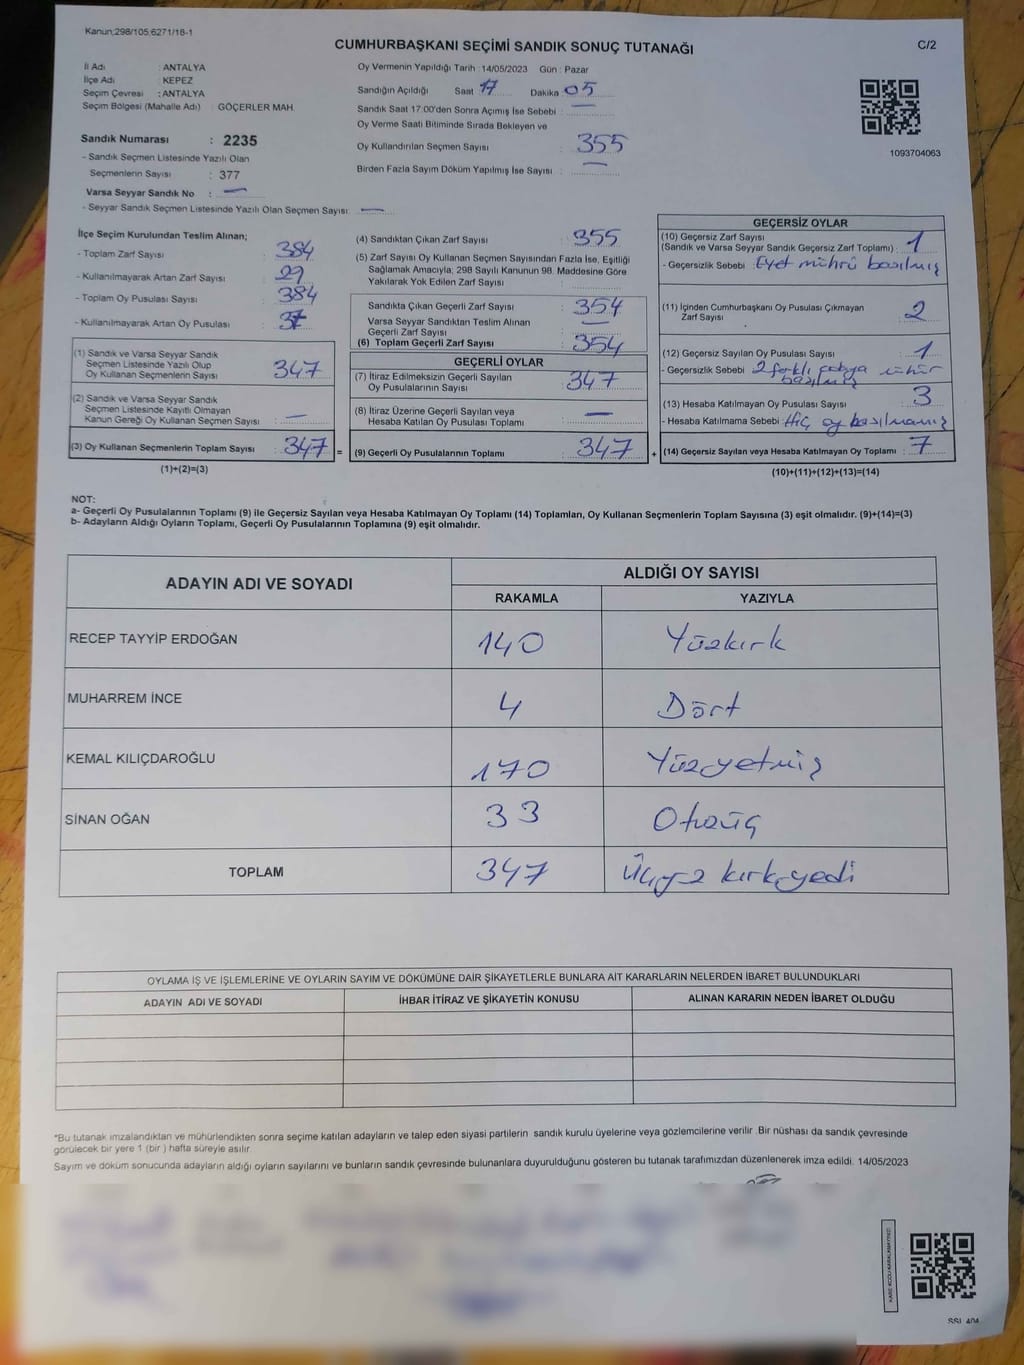 Kanun;298/105;6271/18-1
CUMHURBAŞKANI SEÇİMİ SANDIK SONUÇ TUTANAĞI
C/2
İl Adı : ANTALYA
İlçe Adı : KEPEZ
Seçim Çevresi : ANTALYA
Seçim Bölgesi (Mahalle Adı) : GÖÇERLER MAH
Sandık Numarası : 2235
- Sandık Seçmen Listesinde Yazılı Olan
Seçmenlerin Sayısı : 377
Varsa Seyyar Sandık No : —
- Seyyar Sandık Seçmen Listesinde Yazılı Olan Seçmen Sayısı: —
Oy Vermenin Yapıldığı Tarih : 14/05/2023 Gün : Pazar
Sandığın Açıldığı Saat 17 Dakika 05
Sandık Saat 17:00'den Sonra Açımış İse Sebebi : —
Oy Verme Saati Bitiminde Sırada Bekleyen ve
Oy Kullandırılan Seçmen Sayısı : 355
Birden Fazla Sayım Döküm Yapılmış İse Sayısı : —
1093704063
İlçe Seçim Kurulundan Teslim Alınan;
- Toplam Zarf Sayısı : 384
- Kullanılmayarak Artan Zarf Sayısı : 29
- Toplam Oy Pusulası Sayısı : 384
- Kullanılmayarak Artan Oy Pusulası : 37
(1) Sandık ve Varsa Seyyar Sandık
Seçmen Listesinde Yazılı Olup
Oy Kullanan Seçmenlerin Sayısı : 347
(2) Sandık ve Varsa Seyyar Sandık
Seçmen Listesinde Kayıtlı Olmayan
Kanun Gereği Oy Kullanan Seçmen Sayısı : —
(3) Oy Kullanan Seçmenlerin Toplam Sayısı : 347 =
(1)+(2)=(3)
(4) Sandıktan Çıkan Zarf Sayısı : 355
(5) Zarf Sayısı Oy Kullanan Seçmen Sayısından Fazla İse, Eşitliği
Sağlamak Amacıyla; 298 Sayılı Kanunun 98. Maddesine Göre
Yakılarak Yok Edilen Zarf Sayısı :
Sandıkta Çıkan Geçerli Zarf Sayısı : 354
Varsa Seyyar Sandıktan Teslim Alınan
Geçerli Zarf Sayısı : —
(6) Toplam Geçerli Zarf Sayısı : 354
GEÇERLİ OYLAR
(7) İtiraz Edilmeksizin Geçerli Sayılan
Oy Pusulalarının Sayısı : 347
(8) İtiraz Üzerine Geçerli Sayılan veya
Hesaba Katılan Oy Pusulalarının Toplamı : —
(9) Geçerli Oy Pusulalarının Toplamı : 347 +
GEÇERSİZ OYLAR
(10) Geçersiz Zarf Sayısı
(Sandık ve Varsa Seyyar Sandık Geçersiz Zarf Toplamı) : 1
- Geçersizlik Sebebi : Evet mührü basılmış
(11) İçinden Cumhurbaşkanı Oy Pusulası Çıkmayan
Zarf Sayısı : 2
(12) Geçersiz Sayılan Oy Pusulası Sayısı : 1
- Geçersizlik Sebebi : 2 farklı mühür
basılmış
(13) Hesaba Katılmayan Oy Pusulası Sayısı : 3
- Hesaba Katılmama Sebebi : Hiç oy basılmamış
(14) Geçersiz Sayılan veya Hesaba Katılmayan Oy Toplamı : 7
(10)+(11)+(12)+(13)=(14)
NOT:
a- Geçerli Oy Pusulalarının Toplamı (9) ile Geçersiz Sayılan veya Hesaba Katılmayan Oy Toplamı (14) Toplamları, Oy Kullanan Seçmenlerin Toplam Sayısına (3) eşit olmalıdır. (9)+(14)=(3)
b- Adayların Aldığı Oyların Toplamı, Geçerli Oy Pusulalarının Toplamına (9) eşit olmalıdır.
ADAYIN ADI VE SOYADI ALDIĞI OY SAYISI
RAKAMLA YAZIYLA
RECEP TAYYİP ERDOĞAN 140 Yüzkırk
MUHARREM İNCE 4 Dört
KEMAL KILIÇDAROĞLU 170 Yüzyetmiş
SİNAN OĞAN 33 Otuzüç
TOPLAM 347 Üçyüz kırkyedi
OYLAMA İŞ VE İŞLEMLERİNE VE OYLARIN SAYIM VE DÖKÜMÜNE DAİR ŞİKAYETLERLE BUNLARA AİT KARARLARIN NELERDEN İBARET BULUNDUKLARI
ADAYIN ADI VE SOYADI İHBAR İTİRAZ VE ŞİKAYETİN KONUSU ALINAN KARARIN NEDEN İBARET OLDUĞU
*Bu tutanak imzalandıktan ve mühürlendikten sonra seçime katılan adayların ve talep eden siyasi partilerin sandık kurulu üyelerine veya gözlemcilerine verilir. Bir nüshası da sandık çevresinde
görülecek bir yere 1 (bir ) hafta süreyle asılır.
Sayım ve döküm sonucunda adayların aldığı oyların sayılarını ve bunların sandık çevresinde bulunanlara duyurulduğunu gösteren bu tutanak tarafımızdan düzenlenerek imza edildi. 14/05/2023
KARE KODU KARALAMAYINIZ!